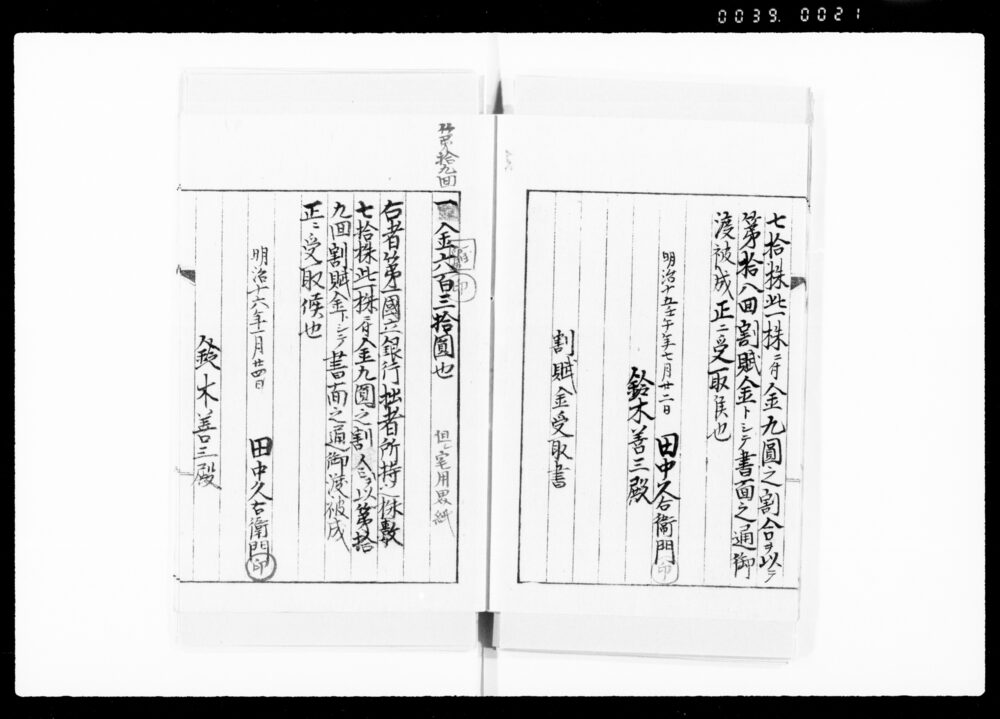 0039. 0021
七拾株此一株ニ付金九圓之割合ヲ以テ
第拾八回割賦金トシテ書面之通御
渡被成正ニ受取候也
明治十五壬午年七月廿二日
田中久右衞門 印
鈴木善三殿
割賦金受取書
第拾九回
一金六百三拾圓也
印
但シ宅用罫紙
右者第一國立銀行拙者所持之株數
七拾株此一株ニ付金九圓之割合ヲ以第拾
九回割賦金トシテ書面之通御渡被成
正ニ受取候也
明治十六年一月廿四日
田中久右衞門 印
鈴木善三殿